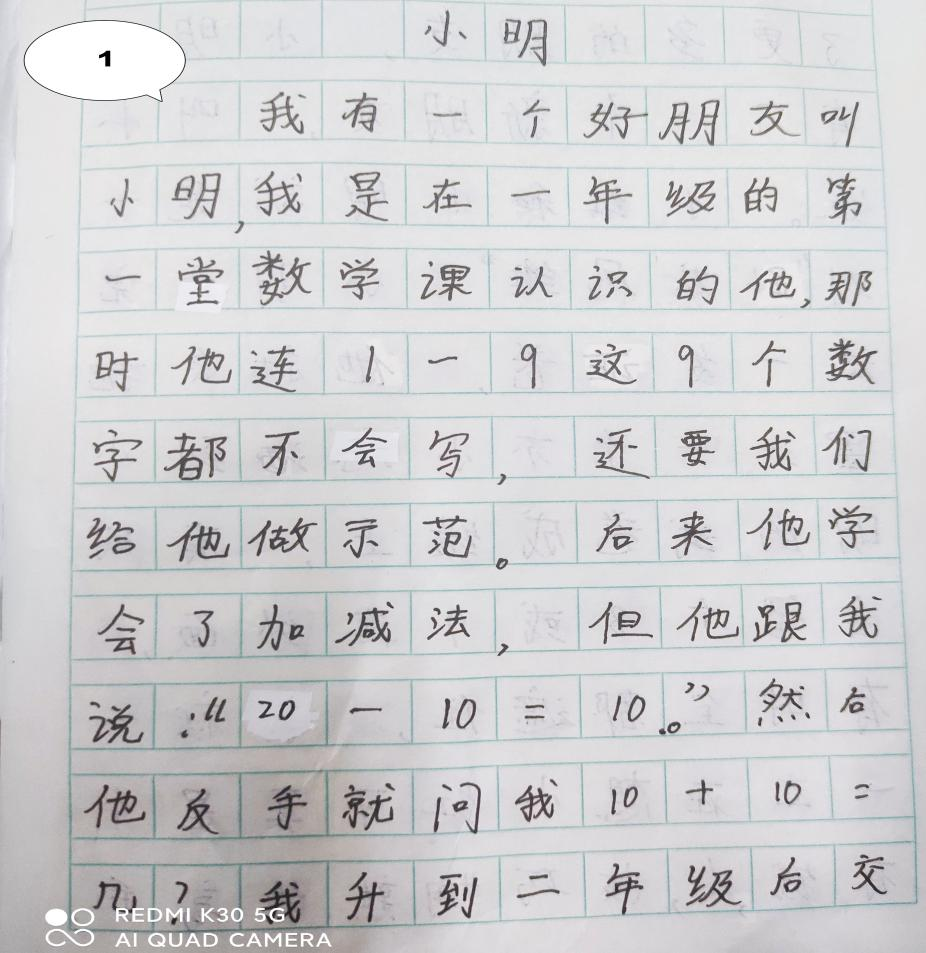 1
小明
我有一个好朋友叫
小明,我是在一年级的第
一堂数学课认识的他,那
时他连1一9这9个数
字都不会写,还要我们
给他做示范。后来他学
会了加减法,但他跟我
说:“20-10=10。”然后
他反手就问我10+10=
几?我升到二年级后交
REDMI K30 5G
AI QUAD CAMERA